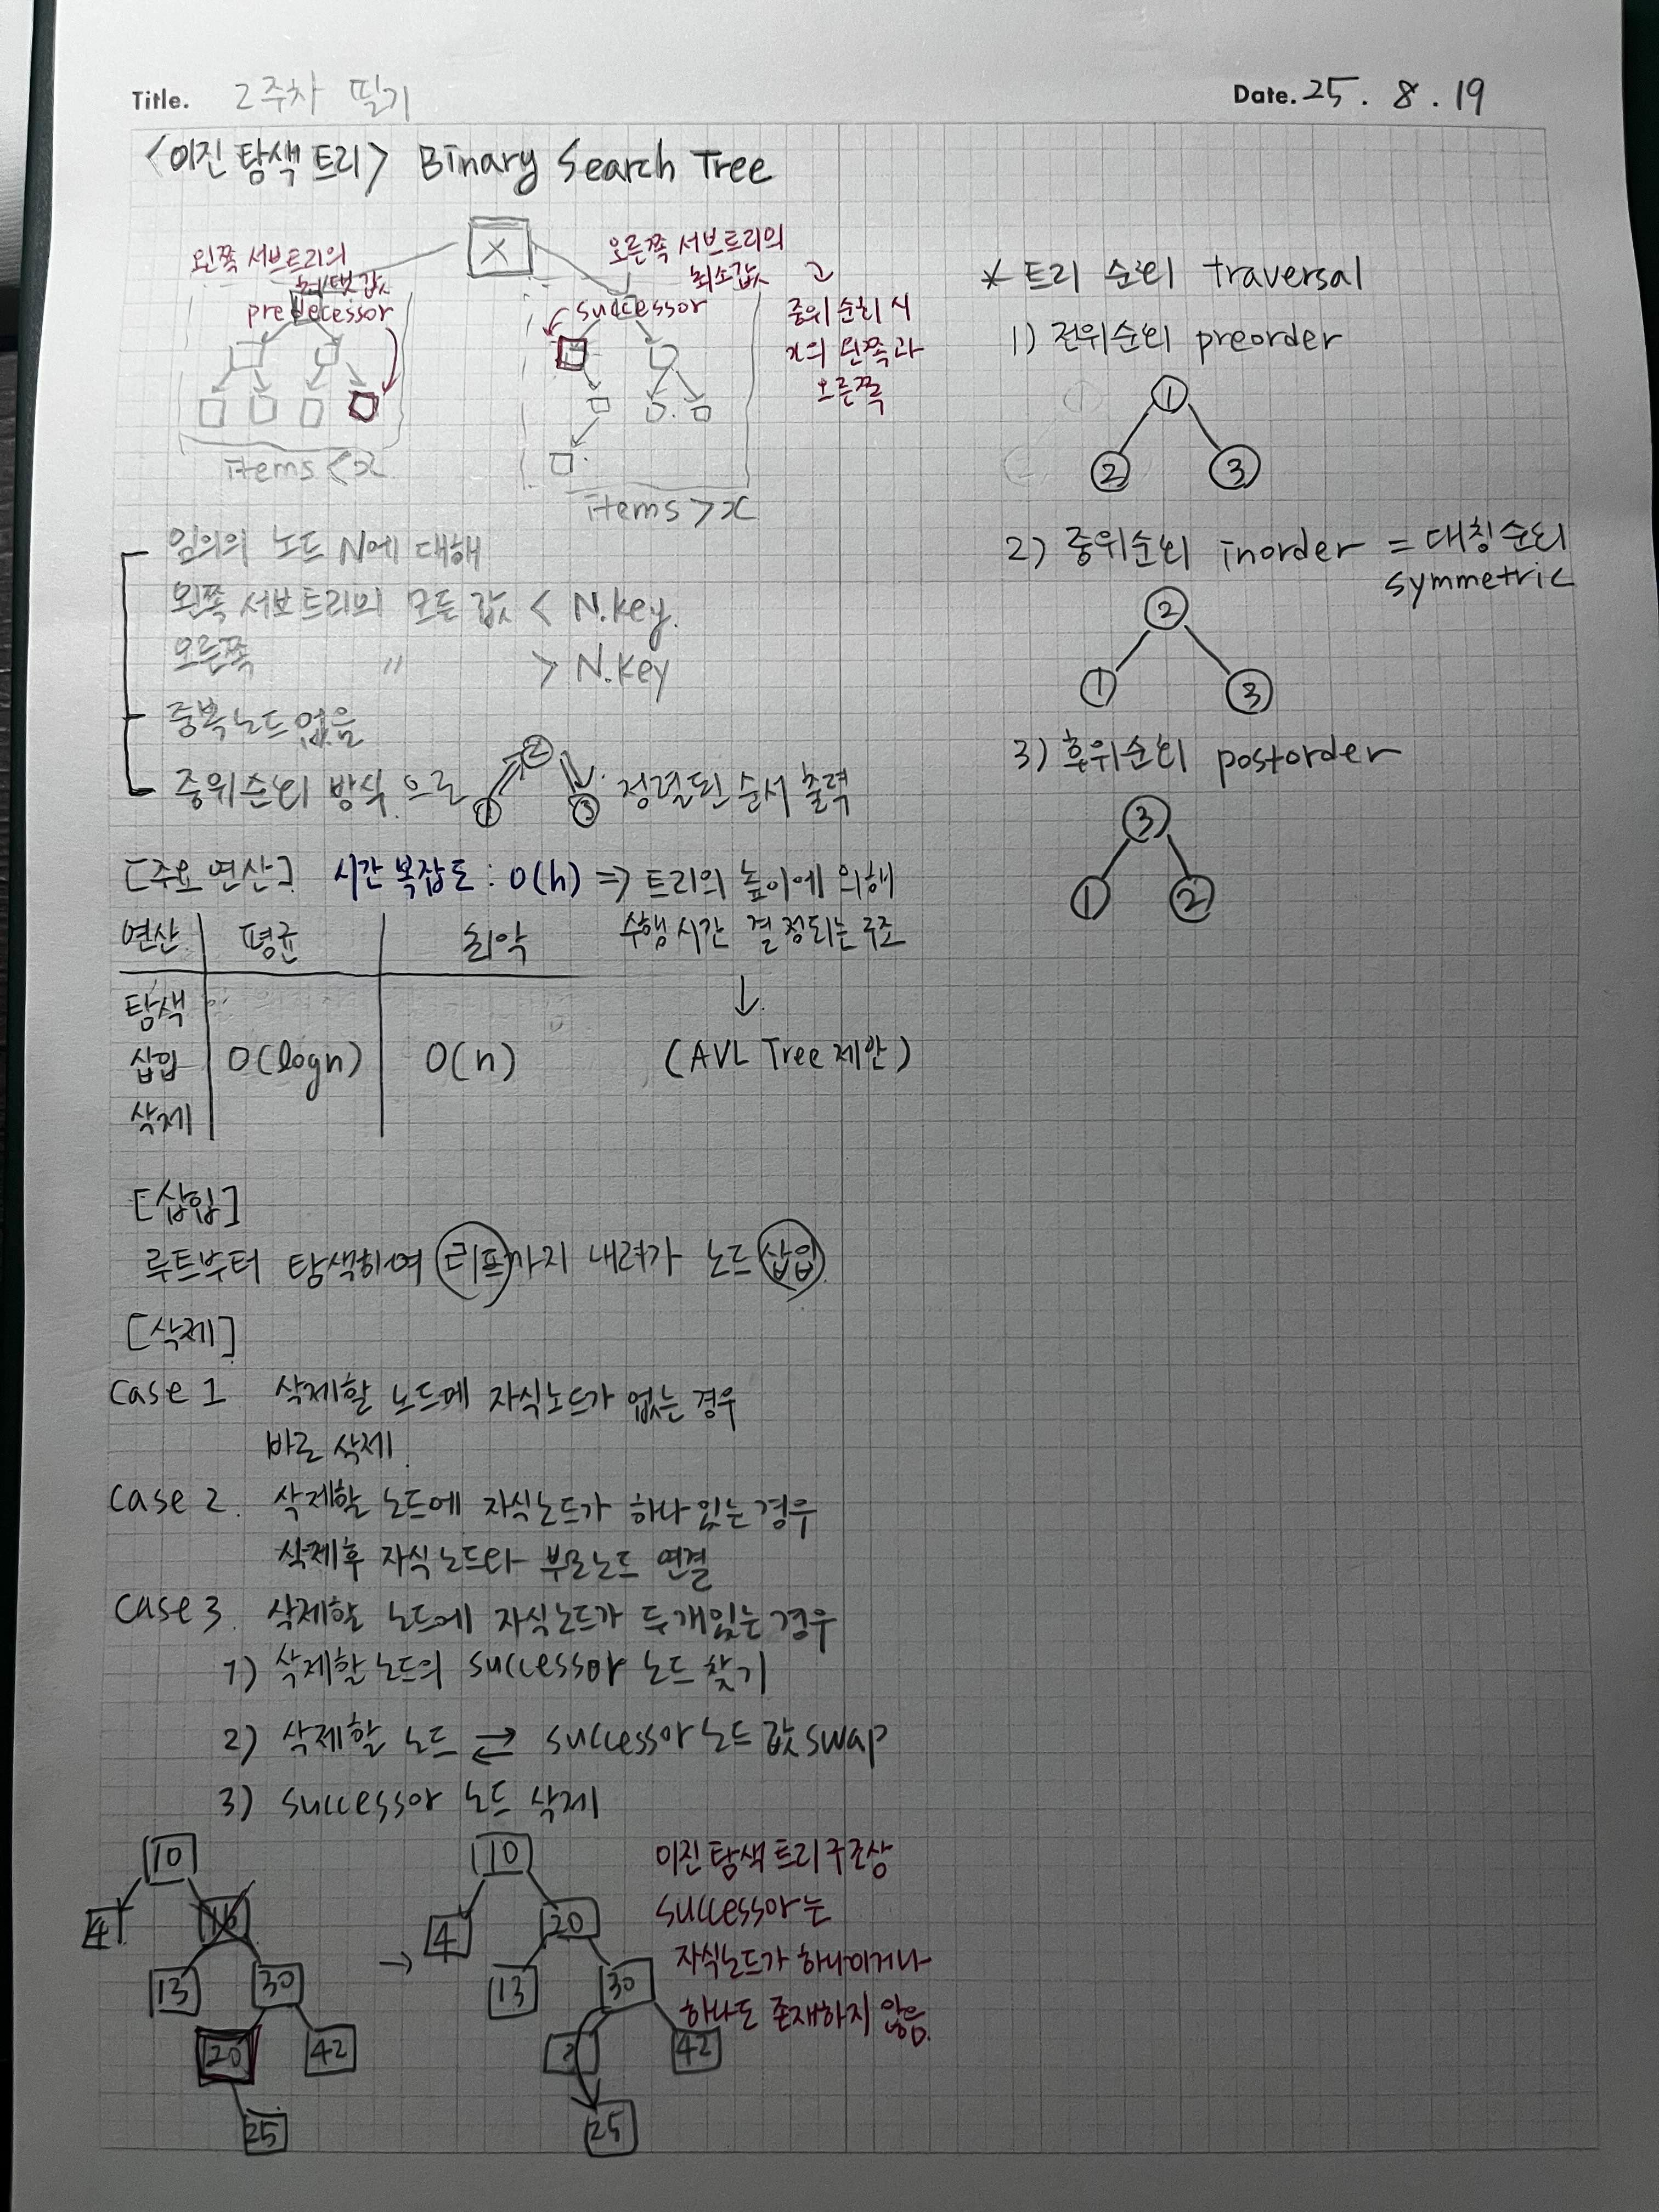 Title. 2주차 필기
Date. 25. 8. 19
<이진 탐색 트리> Binary Search Tree
X
왼쪽 서브트리의
최댓값
predecessor
items < x
오른쪽 서브트리의
최소값
successor
중위 순회 시
x의 왼쪽과
오른쪽
items > x
임의의 노드 N에 대해
왼쪽 서브트리의 모든 값 < N.key.
오른쪽 〃 > N.key
중복노드 없음
중위순회 방식으로 ① ② ③ 정렬된 순서 출력
[주요 연산] 시간 복잡도 : O(h) => 트리의 높이에 의해
수행시간 결정되는 구조
↓
(AVL Tree 제안)
연산 평균 최악
탐색
삽입 O(logn) O(n)
삭제
[삽입]
루트부터 탐색하여 리프까지 내려가 노드 삽입
[삭제]
case 1 삭제할 노드에 자식노드가 없는 경우
바로 삭제
case 2 삭제할 노드에 자식노드가 하나 있는 경우
삭제후 자식노드와 부모노드 연결
case 3 삭제할 노드에 자식노드가 두개있는 경우
1) 삭제할 노드의 successor 노드 찾기
2) 삭제할 노드 ⇄ successor 노드 값 swap
3) successor 노드 삭제
10
4
13 30
20 42
25
→
10
4 20
13 30
42
25
이진 탐색 트리 구조상
successor는
자식노드가 하나이거나
하나도 존재하지 않음.
* 트리 순회 traversal
1) 전위순회 preorder
①
② ③
2) 중위순회 inorder = 대칭순회
symmetric
②
① ③
3) 후위순회 postorder
③
① ②